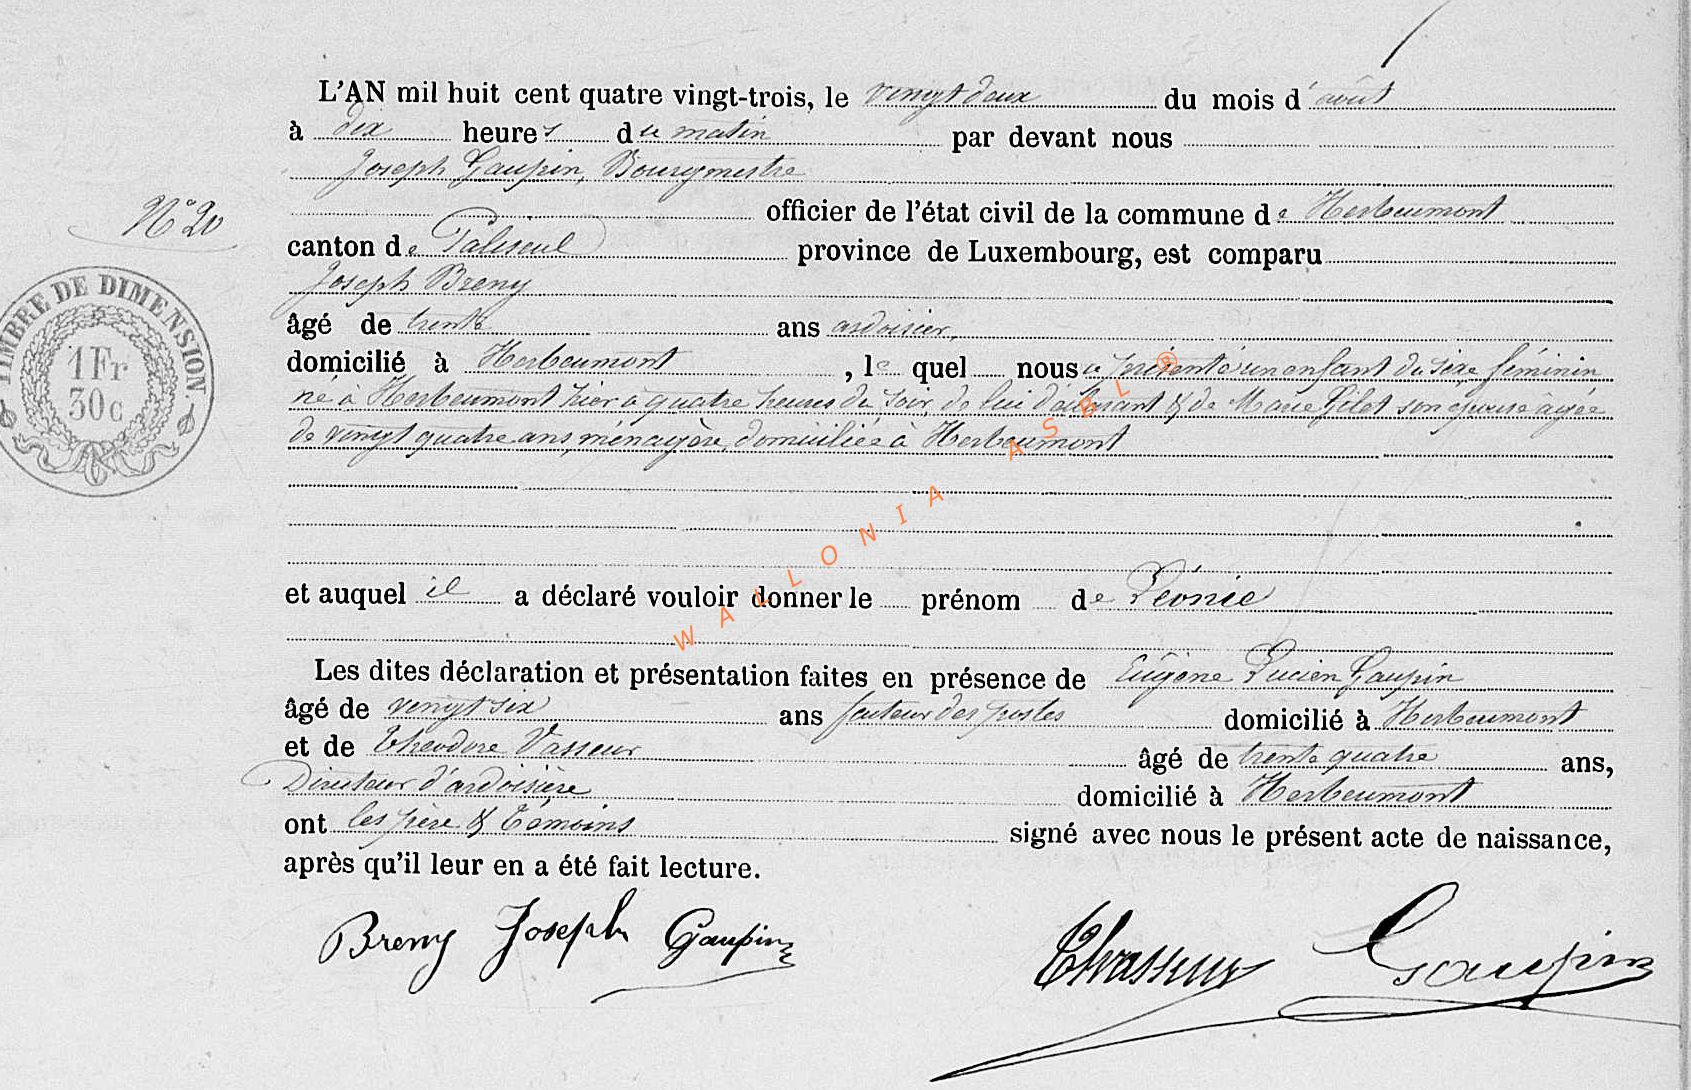 L'AN mil huit cent quatre vingt-trois, le vingt deux du mois d'août
à dix heures du matin par devant nous
Joseph Gaupin, Bourgmestre
officier de l'état civil de la commune de Herbeumont
N° 20
canton de Paliseul province de Luxembourg, est comparu
Joseph Breny
TIMBRE DE DIMENSION
1 Fr
30 c
âgé de trente ans ardoisier,
domicilié à Herbeumont, le quel nous a présenté un enfant du sexe féminin
né à Herbeumont hier à quatre heures du soir, de lui déclarant & de Marie Gilet son épouse âgée
de vingt quatre ans, ménagère, domiciliée à Herbeumont
et auquel il a déclaré vouloir donner le prénom de Léonie
Les dites déclaration et présentation faites en présence de Eugène Lucien Gaupin
âgé de vingt six ans facteur des postes domicilié à Herbeumont
et de Théodore Vasseur âgé de trente quatre ans,
Directeur d'ardoisière domicilié à Herbeumont
ont les père & témoins signé avec nous le présent acte de naissance,
après qu'il leur en a été fait lecture.
Breny Joseph Gaupin Thvasseur Gaupin
WALLONIA ASBL ®